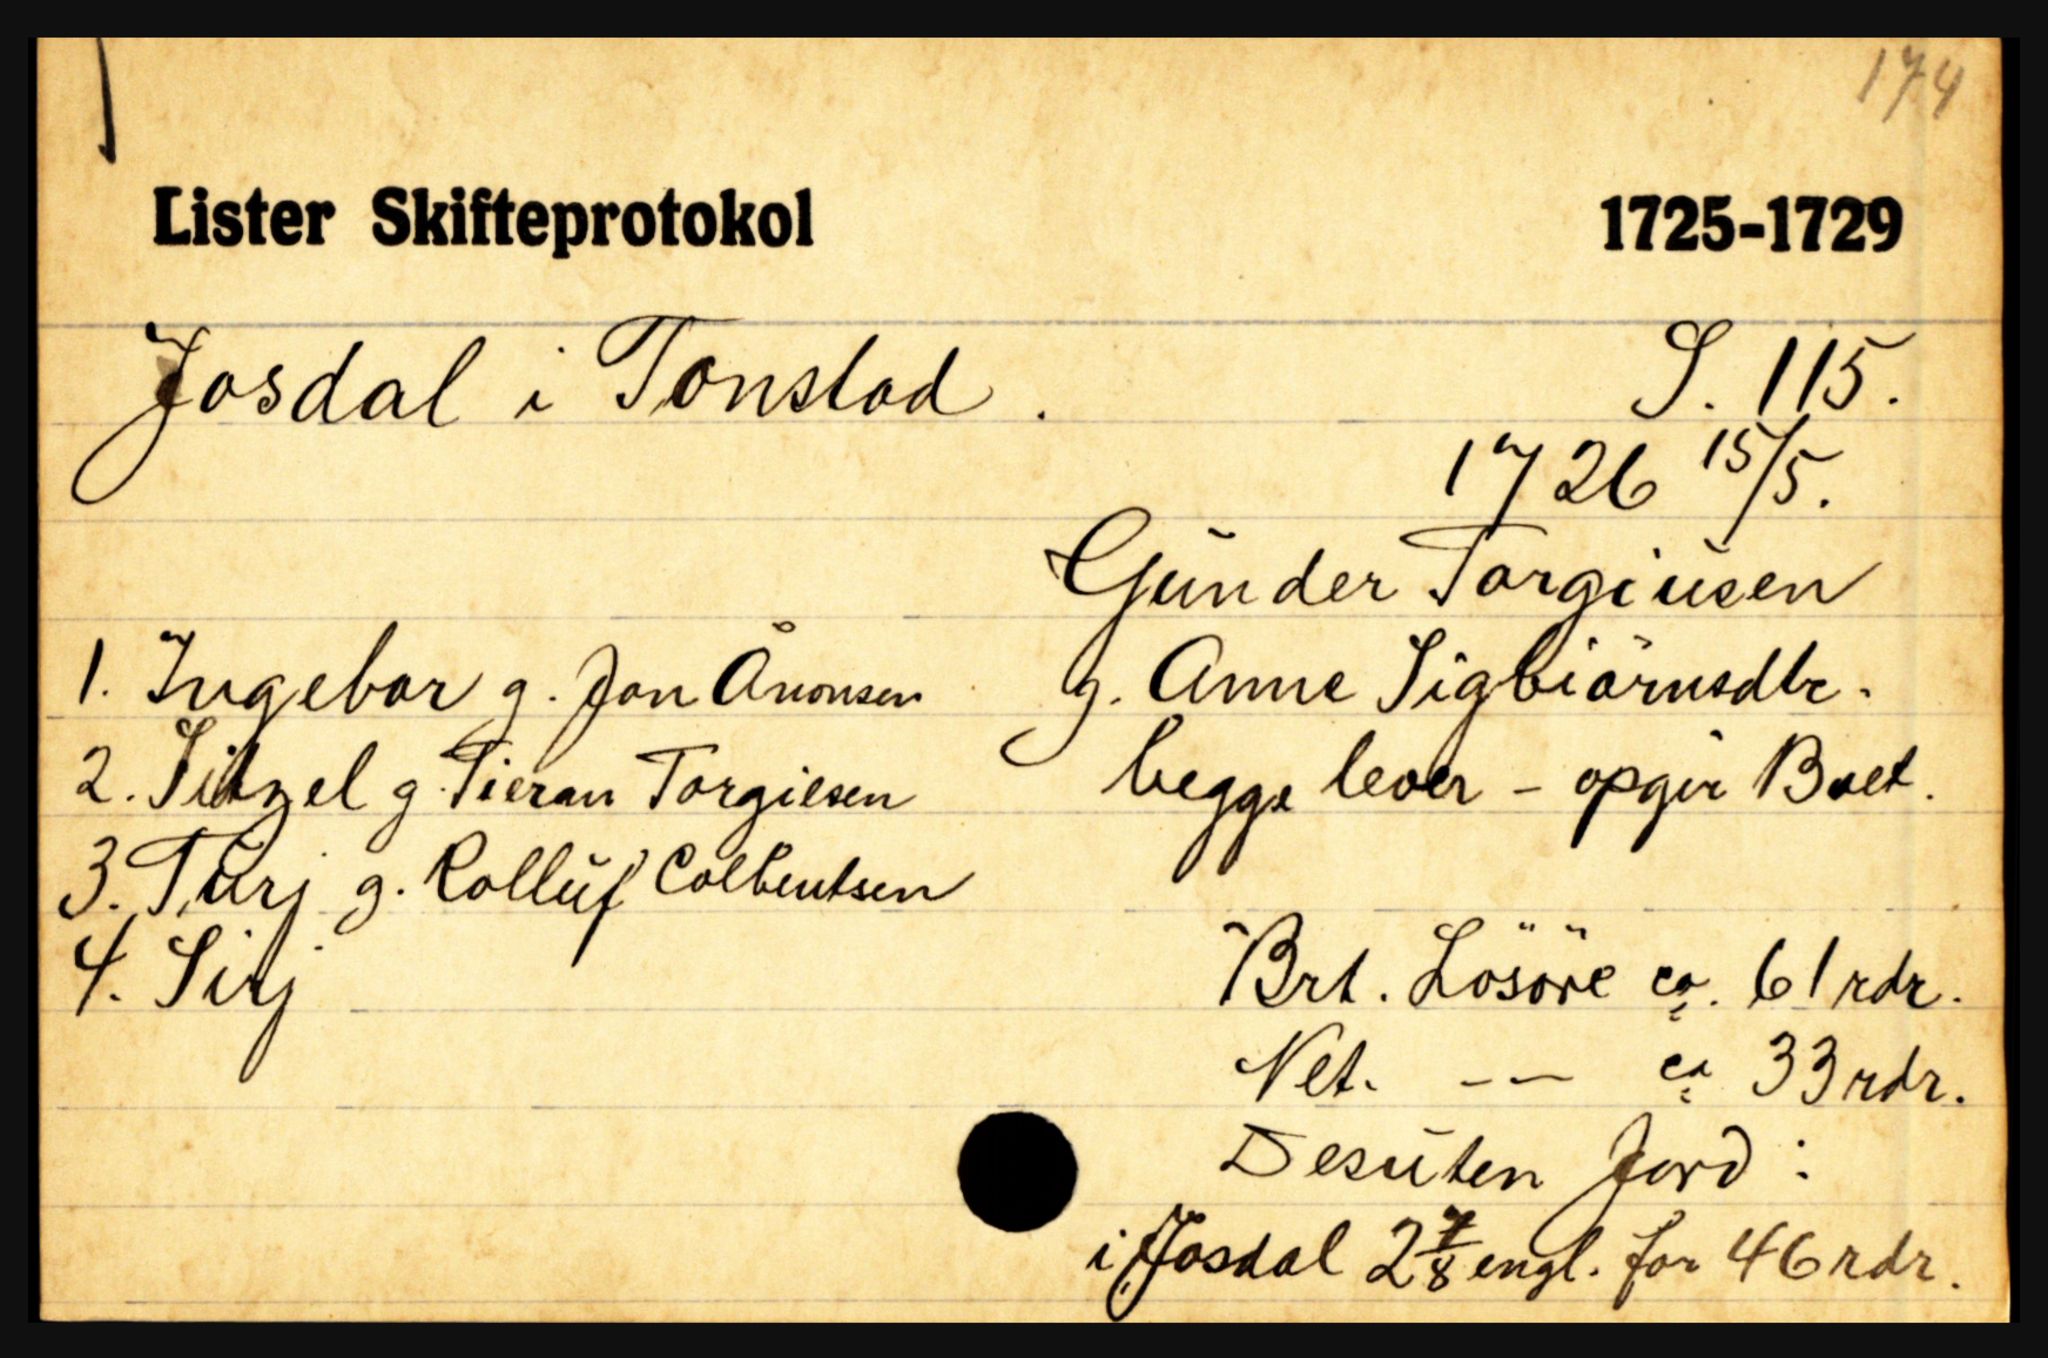 174
Lister Skifteprotokol 1725-1729
Josdal i Tonstad. S. 115.
1726 15/5.
Gunder Torgiusen
g. Anne Sigbiörnsdtr.
begge lever - opgir Boet.
1. Ingebor g. Jon Ånonsen
2. Sitzel g. Tieran Torgiesen
3. Turj g. Rolluf Colbentsen
4. Sirj
Brt. Lösöre ca. 61 rdr.
Net. -- ca 33 rdr.
Desuten Jord:
i Josdal 2 7/8 engl. for 46 rdr.